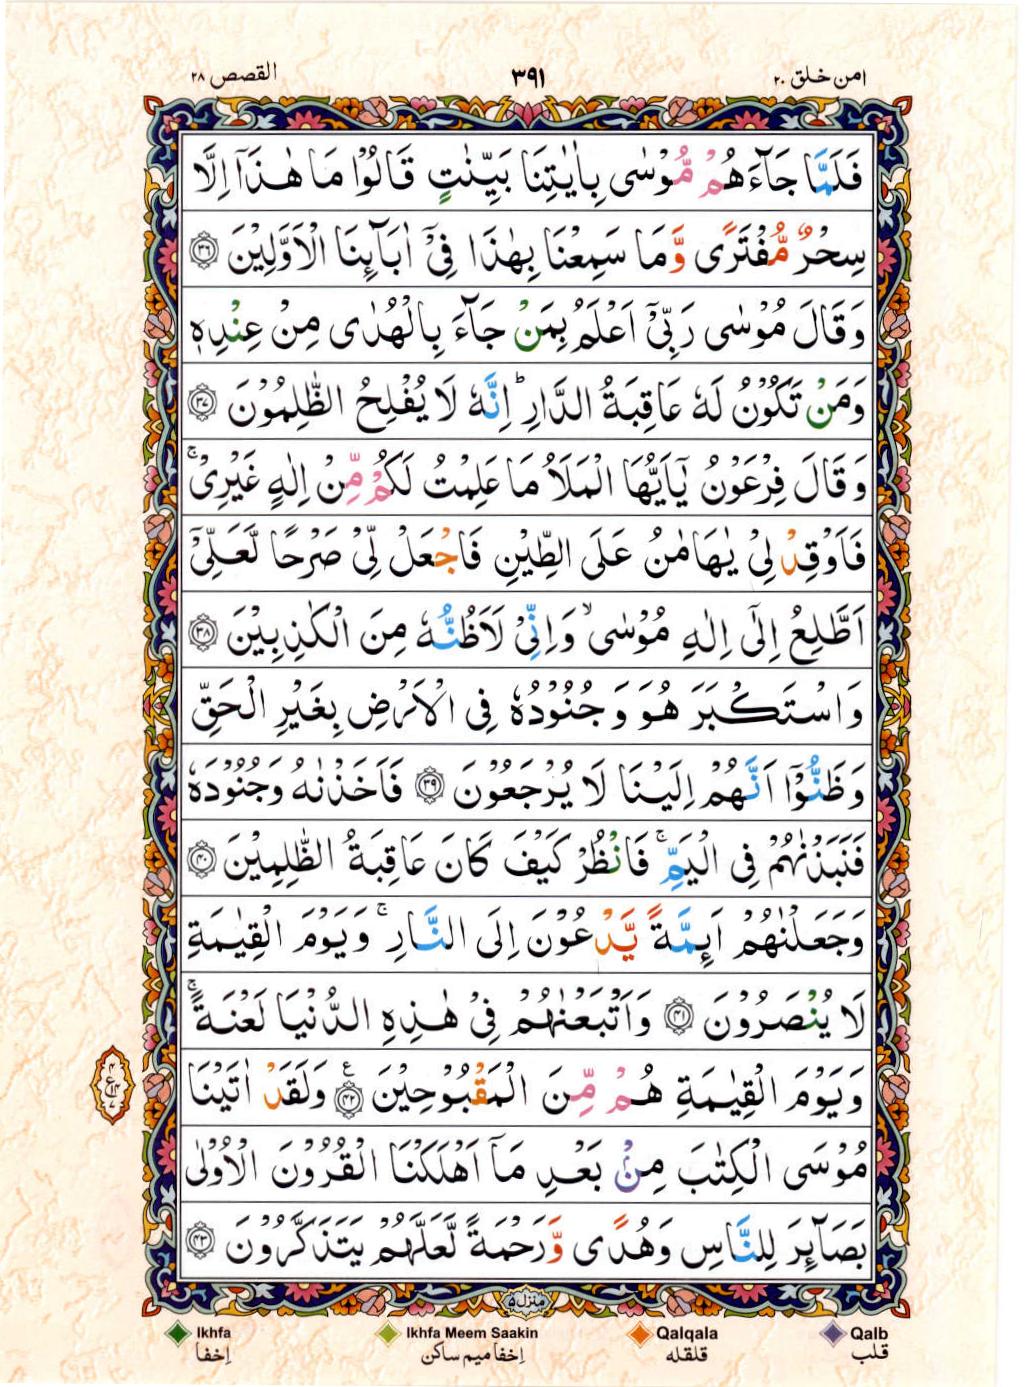 امن خلق ۲۰
۳۹۱
القصص ۲۸
فَلَمَّا جَآءَهُمْ مُّوْسٰی بِاٰیٰتِنَا بَیِّنٰتٍ قَالُوْا مَا هٰذَاۤ اِلَّا
سِحْرٌ مُّفْتَرًی وَّ مَا سَمِعْنَا بِهٰذَا فِیْۤ اٰبَآئِنَا الْاَوَّلِیْنَ ﴿۳۶﴾
وَ قَالَ مُوْسٰی رَبِّیْۤ اَعْلَمُ بِمَنْ جَآءَ بِالْهُدٰی مِنْ عِنْدِهٖ
وَ مَنْ تَكُوْنُ لَهٗ عَاقِبَةُ الدَّارِ ؕ اِنَّهٗ لَا یُفْلِحُ الظّٰلِمُوْنَ ﴿۳۷﴾
وَ قَالَ فِرْعَوْنُ یٰۤاَیُّهَا الْمَلَاُ مَا عَلِمْتُ لَكُمْ مِّنْ اِلٰهٍ غَیْرِیْ ۚ
فَاَوْقِدْ لِیْ یٰهَامٰنُ عَلَی الطِّیْنِ فَاجْعَلْ لِّیْ صَرْحًا لَّعَلِّیْۤ
اَطَّلِعُ اِلٰۤی اِلٰهِ مُوْسٰی ۙ وَ اِنِّیْ لَاَظُنُّهٗ مِنَ الْكٰذِبِیْنَ ﴿۳۸﴾
وَ اسْتَكْبَرَ هُوَ وَ جُنُوْدُهٗ فِی الْاَرْضِ بِغَیْرِ الْحَقِّ
وَ ظَنُّوْۤا اَنَّهُمْ اِلَیْنَا لَا یُرْجَعُوْنَ ﴿۳۹﴾ فَاَخَذْنٰهُ وَ جُنُوْدَهٗ
فَنَبَذْنٰهُمْ فِی الْیَمِّ ۚ فَانْظُرْ كَیْفَ كَانَ عَاقِبَةُ الظّٰلِمِیْنَ ﴿۴۰﴾
وَ جَعَلْنٰهُمْ اَئِمَّةً یَّدْعُوْنَ اِلَی النَّارِ ۚ وَ یَوْمَ الْقِیٰمَةِ
لَا یُنْصَرُوْنَ ﴿۴۱﴾ وَ اَتْبَعْنٰهُمْ فِیْ هٰذِهِ الدُّنْیَا لَعْنَةً ۚ
وَ یَوْمَ الْقِیٰمَةِ هُمْ مِّنَ الْمَقْبُوْحِیْنَ ﴿۴۲﴾ ع وَ لَقَدْ اٰتَیْنَا
مُوْسَی الْكِتٰبَ مِنْۢ بَعْدِ مَاۤ اَهْلَكْنَا الْقُرُوْنَ الْاُوْلٰی
بَصَآئِرَ لِلنَّاسِ وَ هُدًی وَّ رَحْمَةً لَّعَلَّهُمْ یَتَذَكَّرُوْنَ ﴿۴۳﴾
منزل ۵
Ikhfa
Ikhfa Meem Saakin
Qalqala
Qalb
اِخفا
اِخفا میم ساکن
قلقله
قلب